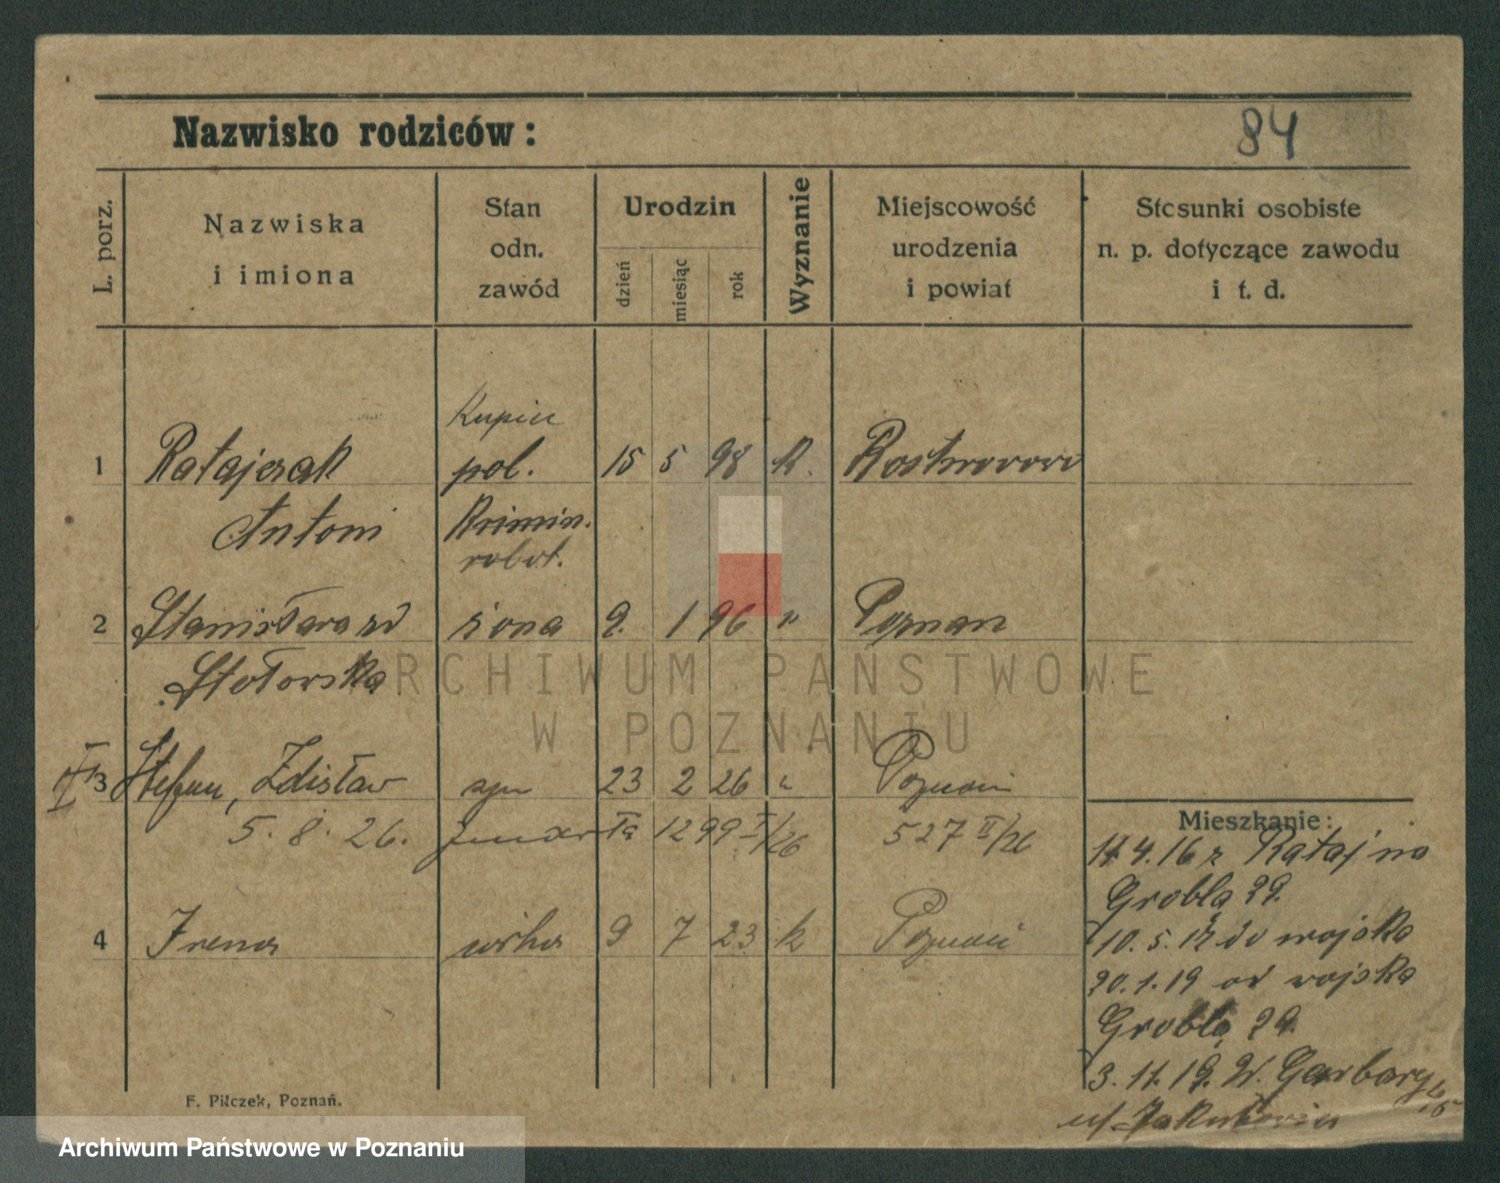 84
Nazwisko rodziców:
L. porz.
Nazwiska
i imiona
Stan
odn.
zawód
Urodzin
dzień
miesiąc
rok
Wyznanie
Miejscowość
urodzenia
i powiat
Stosunki osobiste
n. p. dotyczące zawodu
i t. d.
Kupiec
1 Ratajczak pol. 15 5 98 K. Rostworowo
Antoni Krimin.
robot.
2 Stanisława zd żona 9. 1 96 " Poznan
Stotorska
3 Stefan, Zdisław syn 23 2 26 " Poznań
5. 8. 26. 1299 I/26 527 II/26
4 Irena córka 9 7 23 k Poznań
Mieszkanie:
4.16 z Rataj na
Grobla 29.
10. 5. 17 do wojska
20. 1. 19 od wojska
Grobla 29.
3. 11. 19. W. Garbary
ul.
F. Pilczek, Poznań.
ARCHIWUM PAŃSTWOWE
W POZNANIU
Archiwum Państwowe w Poznaniu